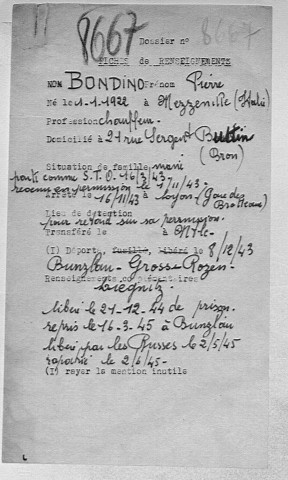 8667 Dossier n° 8667
FICHES de RENSEIGNEMENTS
NOM BONDINO Prénom Pierre
Né le 1-1-1922 à Mezzenile (Italie)
Profession chauffeur.
Domicilié à 21 rue Sergent
(Bron)
Situation de famille marié
parti comme S.T.O. 16/3/43-
revenu en permission le 1/11/43-
Arrêté le 16/11/43 à Lyon (Gare des Brotteaux)
Lieu de détention
pour retard sur sa permission.
Transféré le à
(I) Déporté, fusillé, libéré le 8/12/43
Bunzlau-Gross-Rozen-
Renseignements complémentaires
Liegnitz.
libéré le 21-12-44 de prison.
repris le 16-3-45 à Bunzlau
libéré par les Russes le 2/5/45
rapatrié le 2/6/45-
(I) rayer la mention inutile